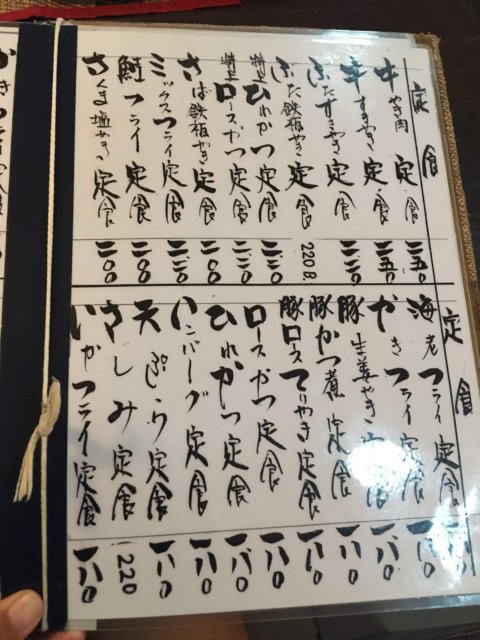 定食
牛やき肉定食 二五〇
牛すきやき定食 二五〇
ぶたすきやき定食 二二〇
ぶた鉄板やき定食 220B.
特上ひれかつ定食 二三〇
特上ロースかつ定食 二三〇
さば鉄板やき定食 二〇〇
ミックスフライ定食 二二〇
鮭フライ定食 二〇〇
さんま塩やき定食 二〇〇
定食
海老フライ定食 一八〇
かきフライ定食 一八〇
豚生姜やき定食 一八〇
豚かつ煮定食 一八〇
豚ロースてりやき定食 一八〇
ロースかつ定食 一八〇
ひれかつ定食 一八〇
ハンバーグ定食 一八〇
天ぷら定食 一八〇
さしみ定食 220
いかフライ定食 一八〇
かきフライ